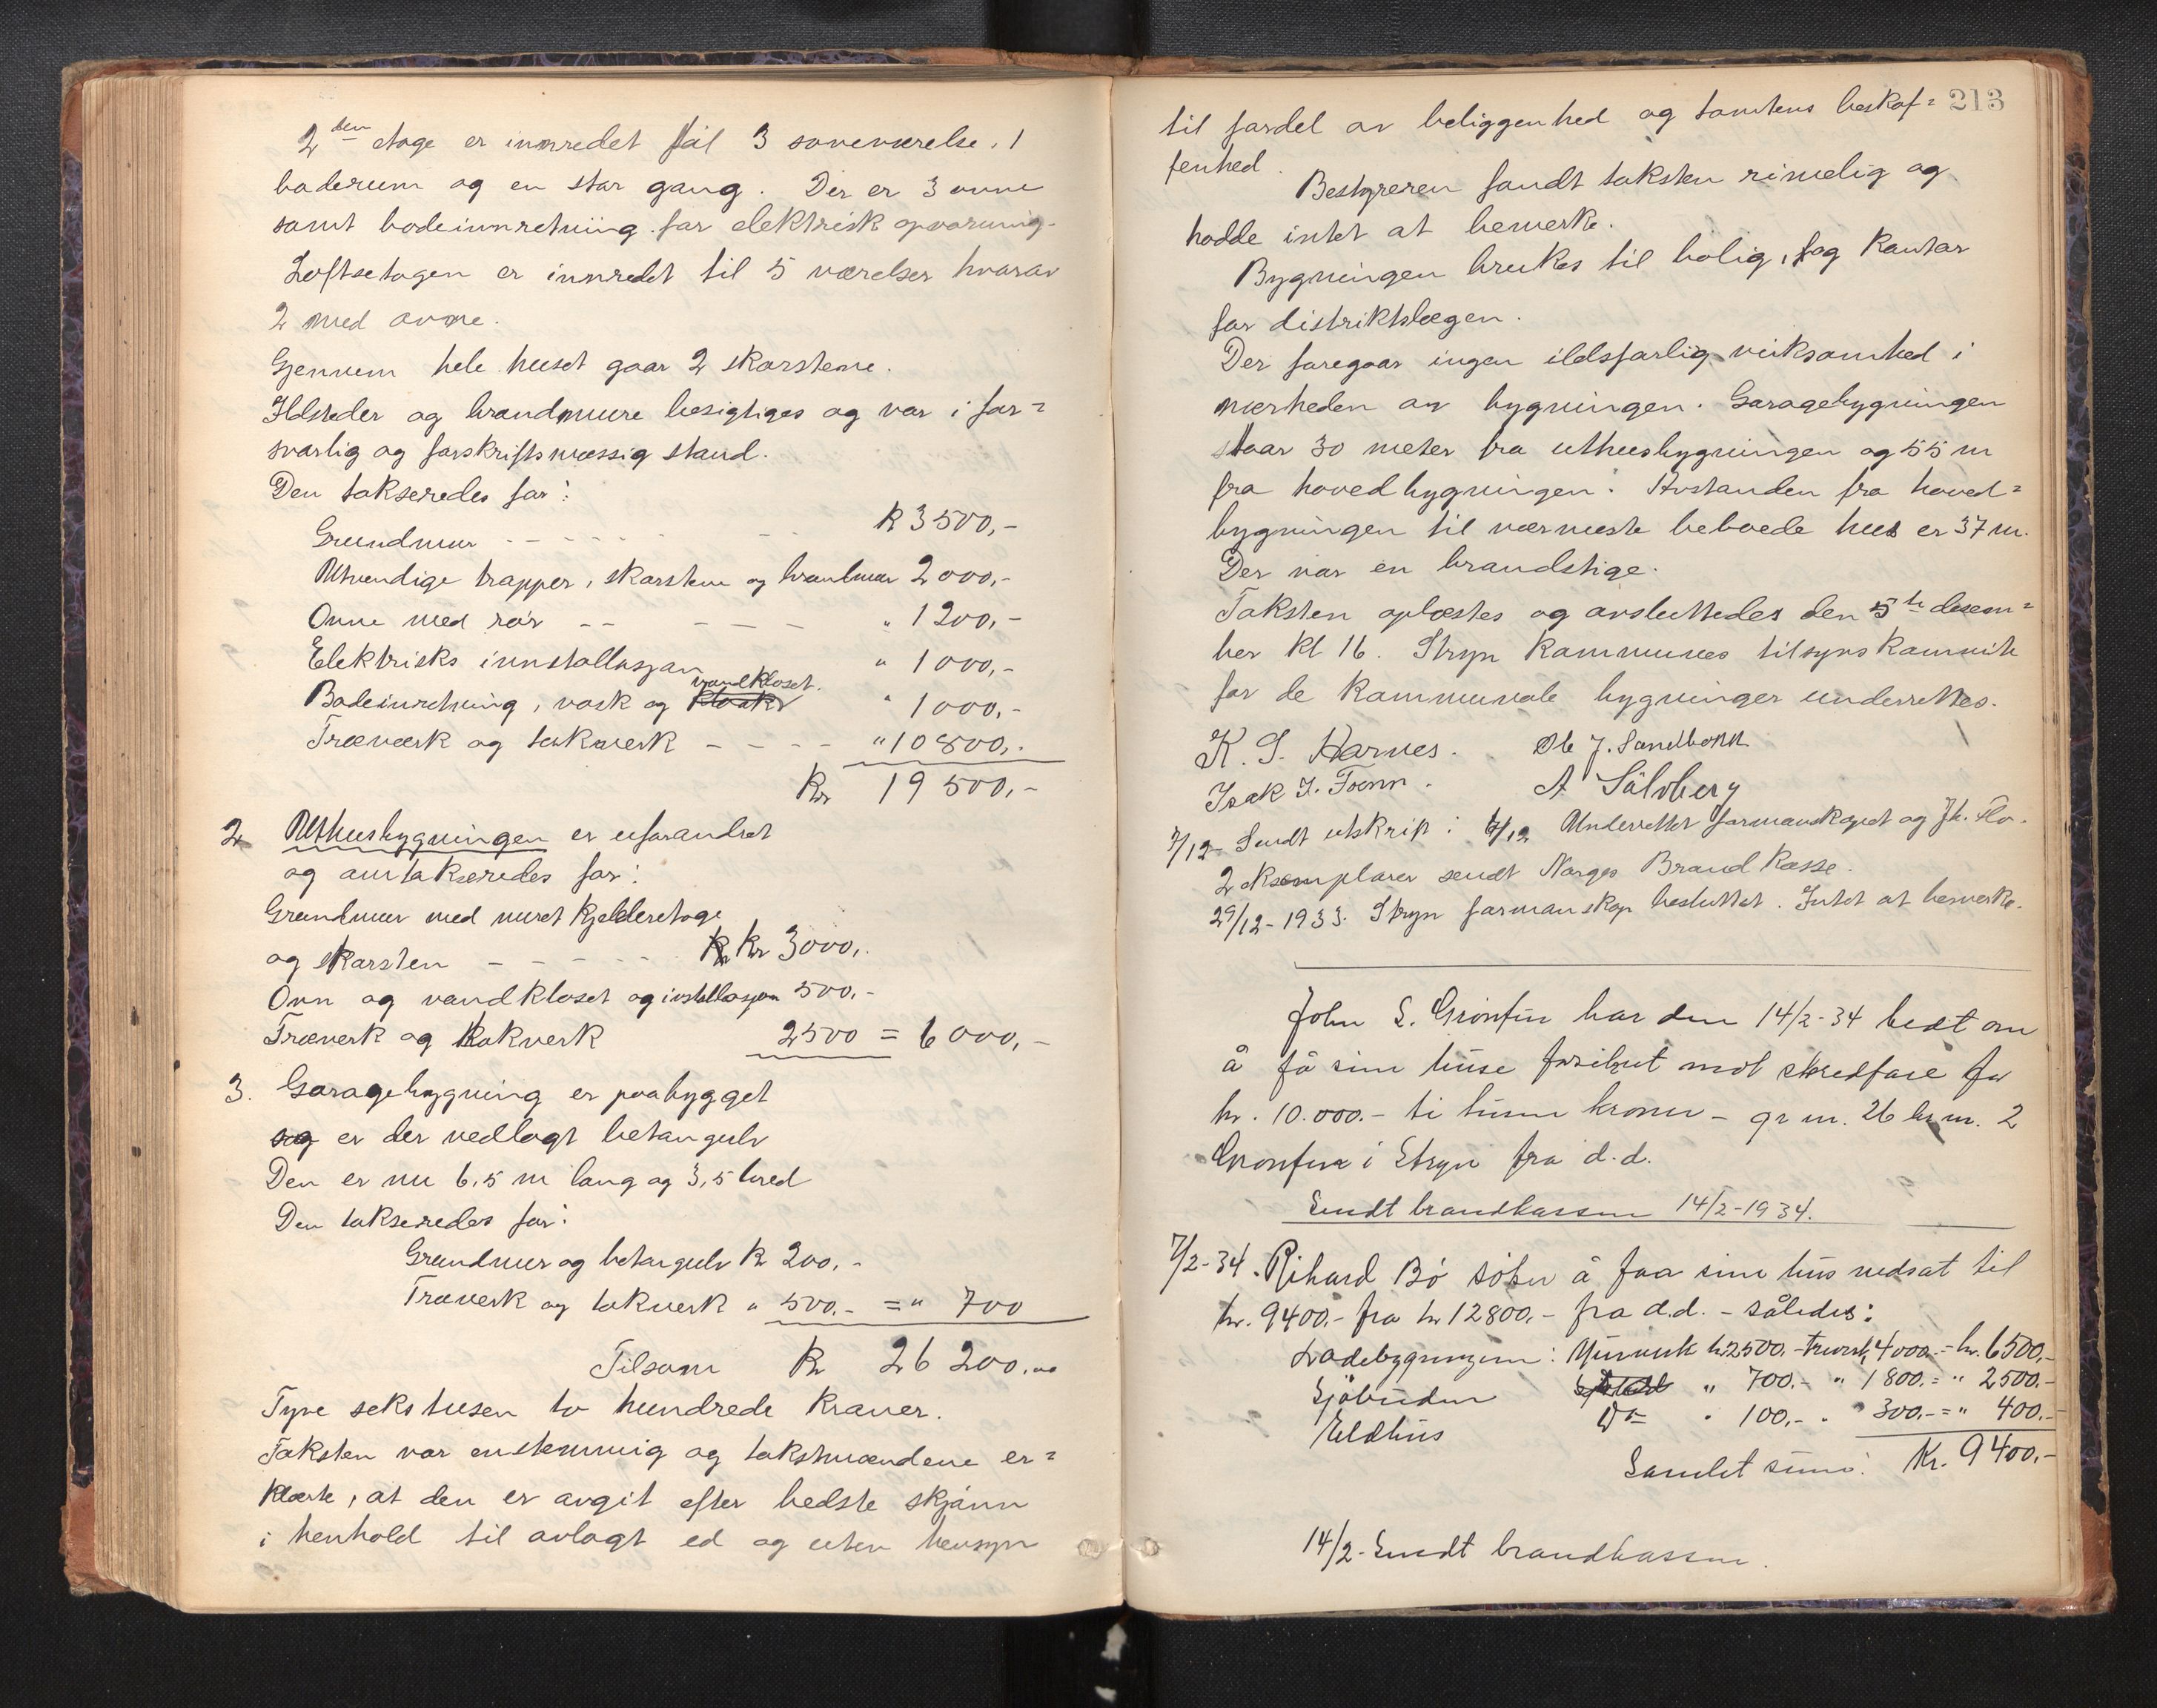 2den etage er innredet til 3 soveværelse, 1
baderum og en stor gang. Der er 3 ovne
samt badeinnretning for elektrisk opvarming.
Loftsetagen er innredet til 5 værelser hvorav
2 med ovne.
Gjennem hele huset gaar 2 skorstene.
Ildsteder og brandmure besigtiges og var i for=
svarlig og forskriftsmæssig stand.
Den takseredes for:
Grundmur - - - - - - - - R 3500,-
Utvendige trapper, skorstene og brandmur 2000,-
Ovne med rør - - - - - " 1200,-
Elektriske innstallasjon " 1000,-
vandkloset.
Badeinretning, vask og kloak " 1000,-
Træværk og takverk - - - - " 10800,-
Kr 19500,-
2 Uthusbygningen er uforandret
og omtakseredes for:
Grundmur med muret kjelderetage
og skorsten - - - - - - Kr 3000,-
Ovn og vandkloset og installasjon 500,-
Træverk og takverk 2500 = 6000,-
3. Garagebygning er paabygget
og er der vedlagt betongulv
Den er nu 6,5 m lang og 3,5 bred
Den takseredes for:
Grundmur og betongulv R 200,-
Træverk og takverk " 500,- = " 700
Tilsam Kr 26 200,00
Tyve seks tusen to hundrede kroner.
Taksten var enstemmig og takstmændene er=
klærte, at den er avgit efter bedste skjønn
i henhold til avlagt ed og uten hensyn
213
til fordel av beliggenhed og tomtens beskaf=
fenhed.
Bestyreren fandt taksten rimelig og
hadde intet at bemerke.
Bygningen brukes til bolig, og kontor
for distriktslægen.
Der foregaar ingen ildsfarlig virksomhed i
nærheden av bygningen. Garagebygningen
staar 30 meter fra uthusbygningen og 55 m
fra hovedbygningen. Avstanden fra hoved=
bygningen til nærmeste beboede hus er 37 m.
Der var en brandstige.
Taksten oplæstes og avsluttedes den 5te desem=
ber kl 16. Stryn kommunes tilsynskomite
for de kommunale bygninger underrettes.
K. S. Harnes. Ole J. Sandbakk
Isak I. Tonn. A Sølvberg
7/12 - Sendt utskrift: 7/12 Underrettet formanskapet og Jk. Flo.
2 eksemplarer sendt Norges Brand Kasse.
29/12-1933. Stryn formanskap besluttet. Intet at bemerke.
John S. Grønfur har den 14/2-34 bedt om
å få sine huse forsikret mot skredfare for
kr. 10.000.- ti tusen kroner - gr nr. 26 br.nr. 2
Grønfur i Stryn fra d.d.
Sendt brandkassen 14/2-1934.
7/2-34. Rihard Bø søker å faa sine hus nedsat til
kr. 9400.- fra kr 12800,- fra d.d. - således:
Ladebygningen: Murverk kr 2500,- treverk 4000.- = kr. 6500,-
Sjøbuden " 700.- " 1800.- = " 2500.-
Eldhus Do " 100,- " 300,- = " 400.-
Samlet sum: Kr. 9400,-
14/2- Sendt brandkassen.